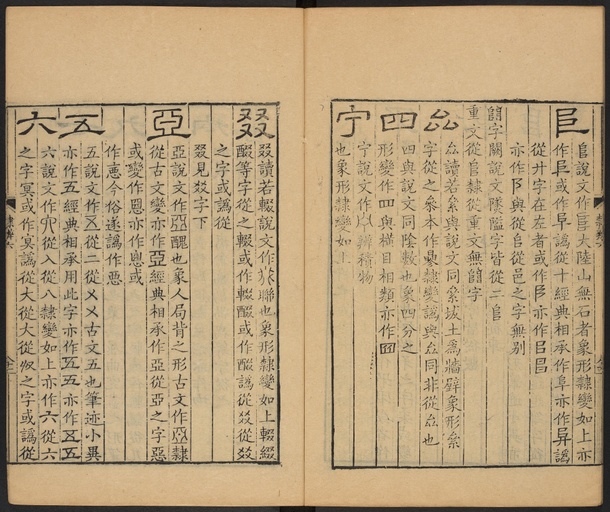 𠂤
𠂤說文作𨸏大陸山無石者象形隸變如上亦
作𠂤或作早譌從十經典相承作阜亦作㫒譌
從廾字在左者或作阝亦作㠯㠯
亦作阝與從𠂤從邑之字無別
𨺅字闕說文𨻼隘字皆從二𠂤
重文從𠂤隸從重文無𨺅字
厽
厽讀若絫與說文同絫坺土爲牆壁象形絫
字從之參本作曑隸變譌與厽同非從厽也
四
四與說文同陰數也象四分之
形變作四與橫目相類亦作𦉭
宁
宁說文作宁辨積物
也象形隸變如上
叕
叕讀若輟說文作叕聯也象形隸變如上輟綴
醊等字從之輟或作輟醊或作醊譌從㸚從㸚
之字或譌從
叕見㸚字下
亞
亞說文作亞醜也象人局背之形古文作亞隸
從古文變亦作亞經典相承作亞從亞之字惡
或變作惡亦作㤪或
作𢙣今俗遂譌作𢙣
五
五說文作𠄡從二從㐅㐅古文五也筆迹小異
亦作五經典相承用此字亦作五五亦作五五
六
六說文作𠔃從入從八隸變如上亦作六從六
之字㝠或作㝠譌從大從大從收之字或譌從